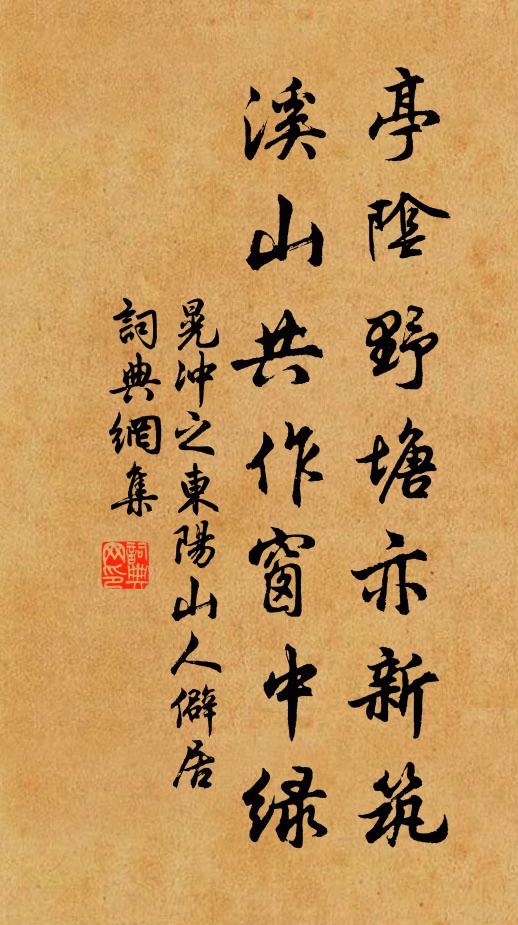 亭陰野塘亦新筑
溪山共作窗中緑
晁冲之東陽山人僻居
詞典網集
詞典網印